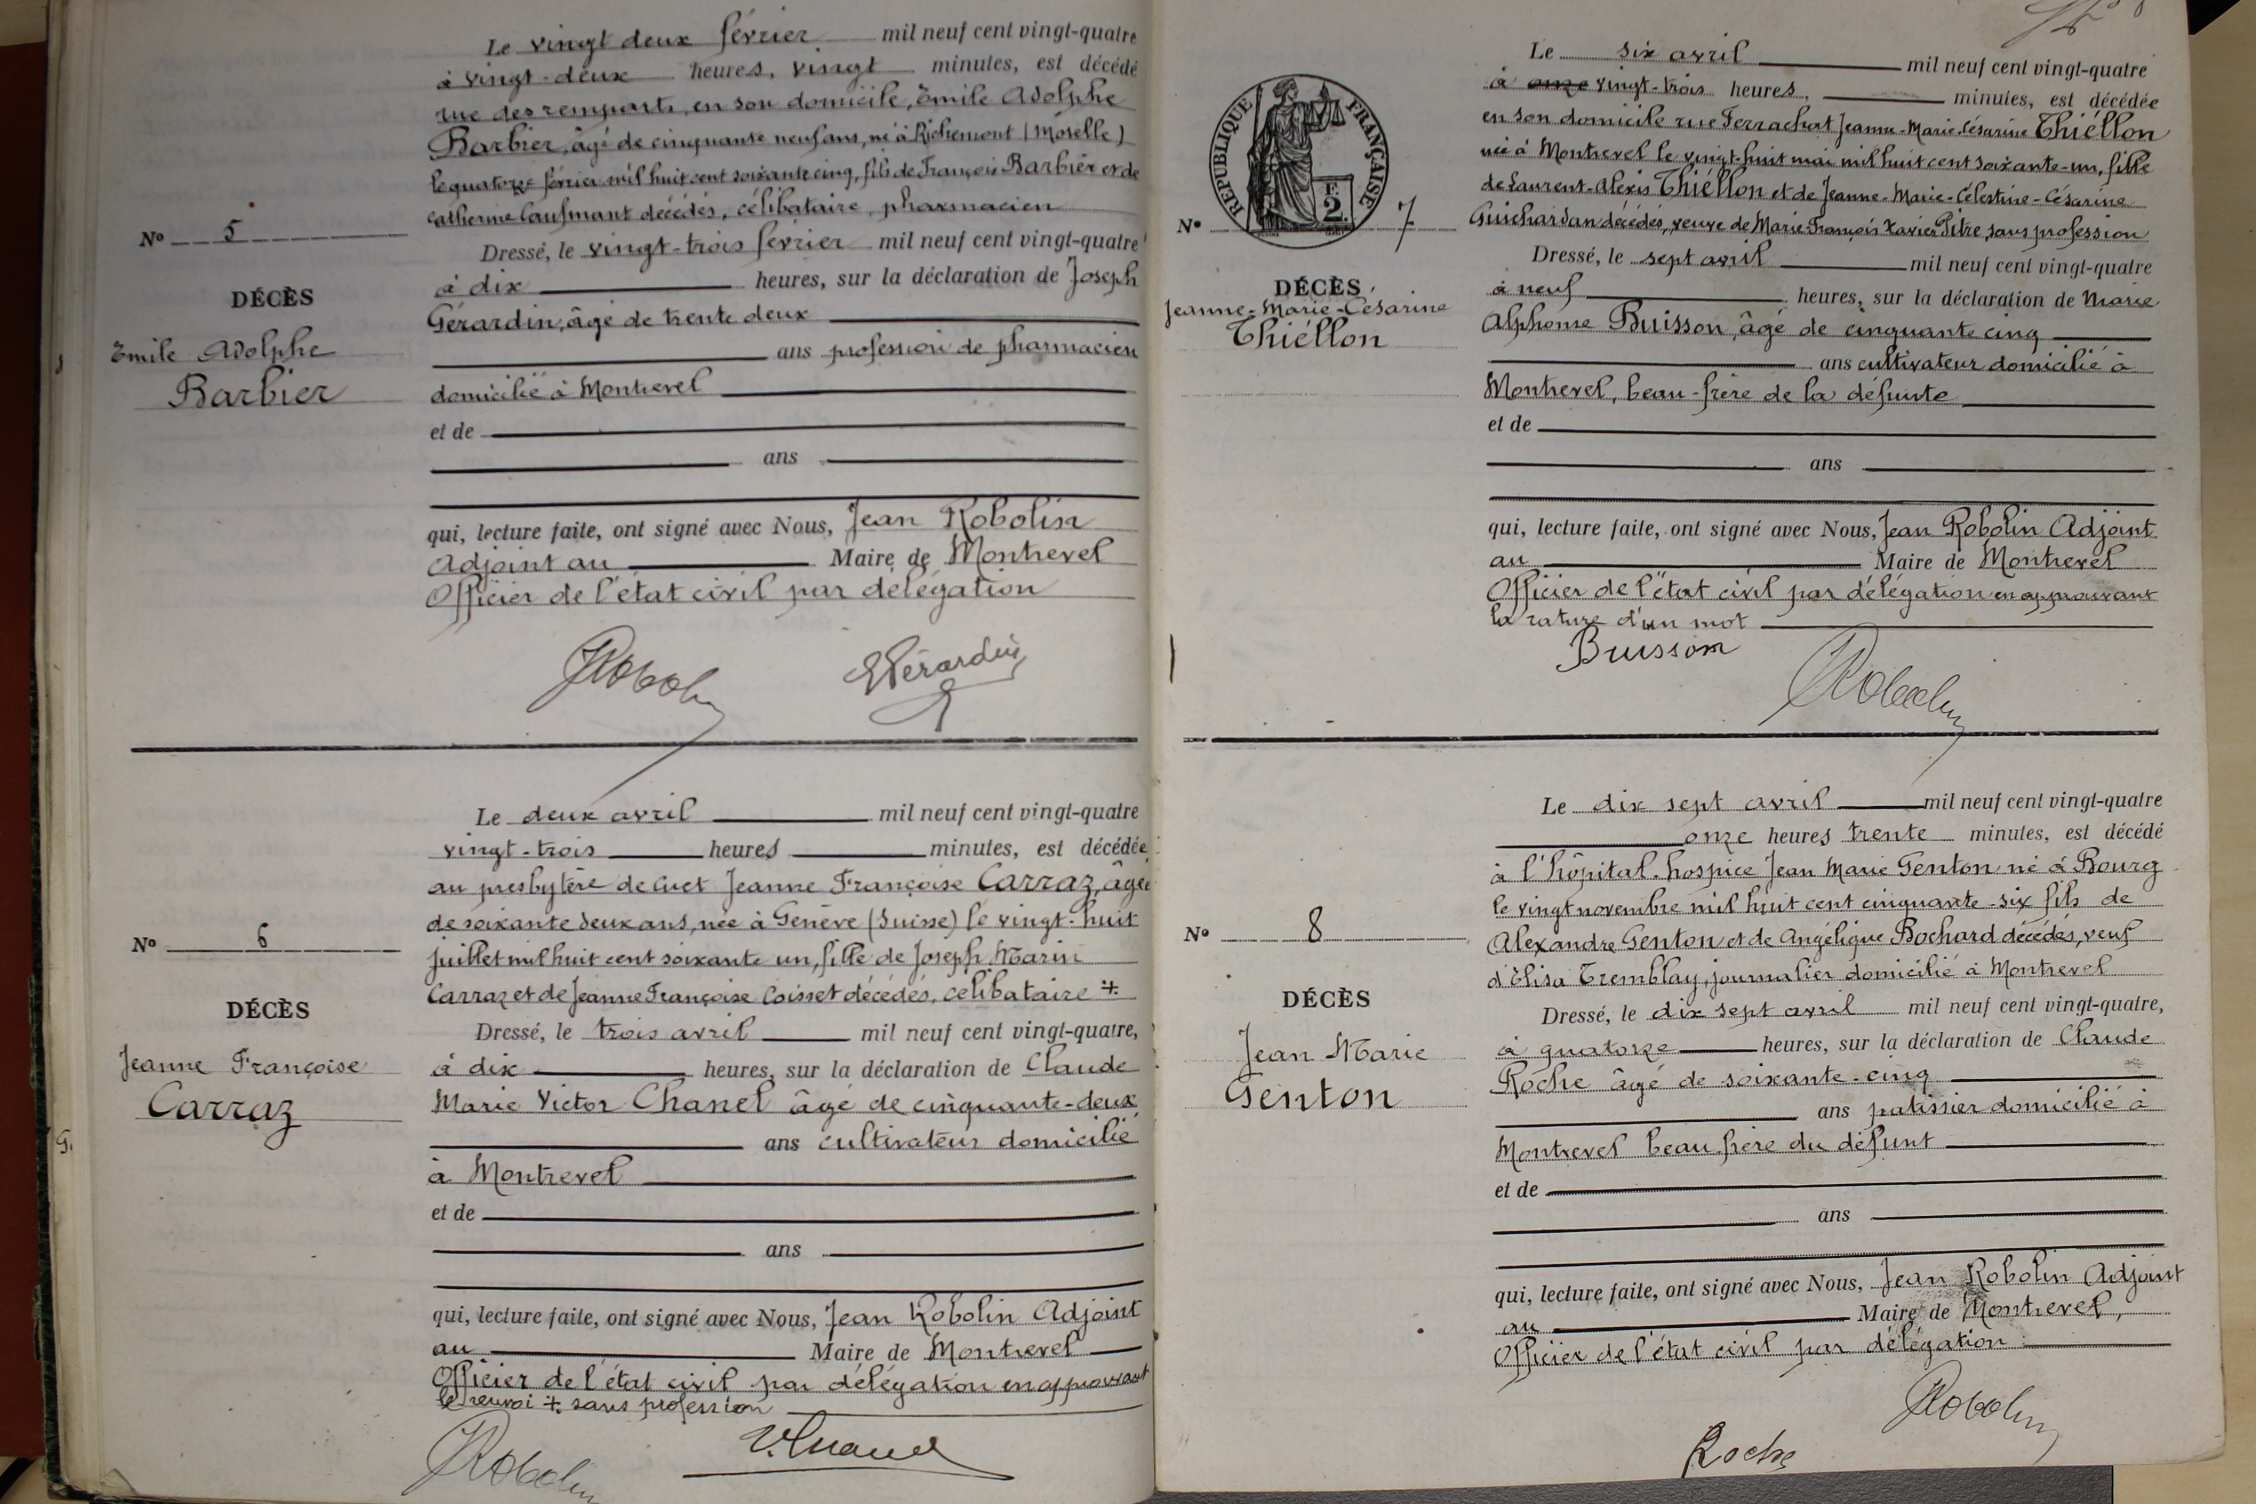 Le vingt deux février mil neuf cent vingt-quatre
à vingt-deux heures, vingt minutes, est décédé
rue des remparts, en son domicile, Emile Adolphe
Barbier, âgé de cinquante neuf ans, né à Richemont (Moselle)
le quatorze février mil huit cent soixante cinq, fils de François Barbier et de
Catherine Caufmant décédés, célibataire, pharmacien
Nº 5
Dressé, le vingt-trois février mil neuf cent vingt-quatre
à dix heures, sur la déclaration de Joseph
DÉCÈS
Gérardin, âgé de trente deux
Emile Adolphe
ans profession de pharmacien
Barbier
domicilié à Montrevel
et de
ans
qui, lecture faite, ont signé avec Nous, Jean Robolin
Adjoint au Maire de Montrevel
Officier de l'état civil par délégation
JRobolin
Gérardin
Le deux avril mil neuf cent vingt-quatre
vingt-trois heures minutes, est décédée
au presbytère de Cuet Jeanne Françoise Carraz, âgée
de soixante deux ans, née à Genève (Suisse) le vingt-huit
Nº 6
juillet mil huit cent soixante un, fille de Joseph Marin
Carraz et de Jeanne Françoise Coisset décédés, célibataire +
DÉCÈS
Dressé, le trois avril mil neuf cent vingt-quatre,
Jeanne Françoise
à dix heures, sur la déclaration de Claude
Carraz
Marie Victor Chanel âgé de cinquante-deux
ans cultivateur domicilié
à Montrevel
et de
ans
qui, lecture faite, ont signé avec Nous, Jean Robolin Adjoint
au Maire de Montrevel
Officier de l'état civil par délégation en approuvant
le renvoi +. sans profession
JRobolin
V. Chanel
Le six avril mil neuf cent vingt-quatre
à onze vingt-trois heures, minutes, est décédée
en son domicile rue Ferrachat Jeanne-Marie-Césarine Thiéllon
née à Montrevel le vingt-huit mai mil huit cent soixante-un, fille
de Laurent-Alexis Thiéllon et de Jeanne-Marie-Célestine-Césarine
Guichardan décédés, veuve de Marie-François Xavier Pitre, sans profession
RÉPUBLIQUE FRANÇAISE
F. 2
Nº 7
Dressé, le sept avril mil neuf cent vingt-quatre
DÉCÈS
à neuf heures, sur la déclaration de Marie
Jeanne-Marie-Césarine
Thiéllon
Alphonse Buisson, âgé de cinquante cinq
ans cultivateur domicilié à
Montrevel, beau-frère de la défunte
et de
ans
qui, lecture faite, ont signé avec Nous, Jean Robolin Adjoint
au Maire de Montrevel
Officier de l'état civil par délégation en approuvant
la rature d'un mot
Buisson
JRobolin
Le dix sept avril mil neuf cent vingt-quatre
onze heures trente minutes, est décédé
à l'hôpital-hospice Jean Marie Genton né à Bourg
le vingt novembre mil huit cent cinquante-six fils de
Nº 8
Alexandre Genton et de Angélique Bochard décédés, veuf
d'Elisa Tremblay, journalier domicilié à Montrevel
DÉCÈS
Dressé, le dix sept avril mil neuf cent vingt-quatre,
Jean Marie
à quatorze heures, sur la déclaration de Claude
Genton
Roche âgé de soixante-cinq
ans patissier domicilié à
Montrevel beau-frère du défunt
et de
ans
qui, lecture faite, ont signé avec Nous, Jean Robolin Adjoint
au Maire de Montrevel,
Officier de l'état civil par délégation
JRobolin
Roche